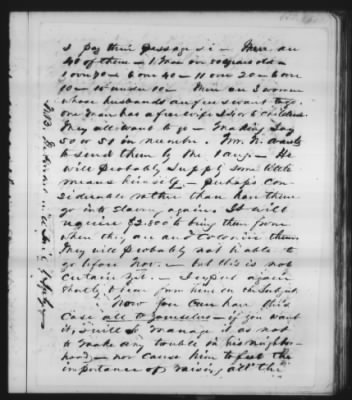 & pay their passage &c — There are
40 of them — 1 man over 80 years old —
1 over 70 — 6 over 40 — 11 over 20 — 6 over
10 — 15 under 10 — There are 3 women
whose husbands are free & want to go.
one man has a free wife & 4 or 5 children.
They all want to go — making say
50 or 51 in number. Mr. wants
to send them by the — He
will probably supply some little
means himself — perhaps con
siderable rather than have them
go into slavery again. It will
require $2.500 to bring them from
where they are and colonize them.
They will probably not be able to
go before Nov. — but this is not
certain yet — I expect again
shortly to hear from him on the subject.
Now you can have this
case all to yourselves — if you want
it, & will so manage it as not
to make any trouble in his neighbor-
hood, — nor cause him to feel the
importance of raising all the